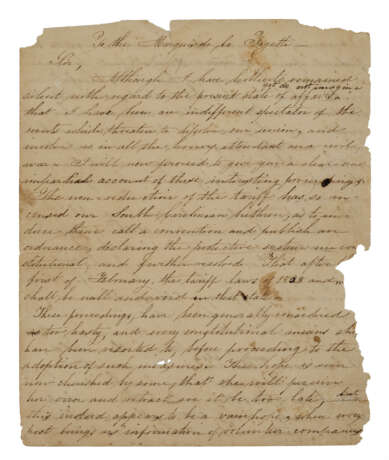 To the Marquis de la Fayette —
Sir,
Although I have hitherto remained
yet do not imagine
silent with regard to the present state of affairs
that I have been an indifferent spectator of the
evils which threaten to dissolve our union, and
involve us in all the horrors attendant on a civil
war. I will now proceed to give you a clear and
impartial account of these interesting proceedings
The non reduction of the tariff has so in
censed our South Carolinian brethren, as to in
duce them call a convention and publish an
ordinance, declaring the protective system uncon
stitutional, and further that after
first of February, the tariff laws of 1828 and
shall be null and void in that state.
These proceedings, have been generally considered
too hasty, and every constitutional means should
have been resorted to, before proceeding to the
adoption of such measures. The hope is even
now cherished by some, that she will perceive
her error and retract ere it be too late, but
this indeed appears to be a vain hope, when every
post brings us information of volunteer companies